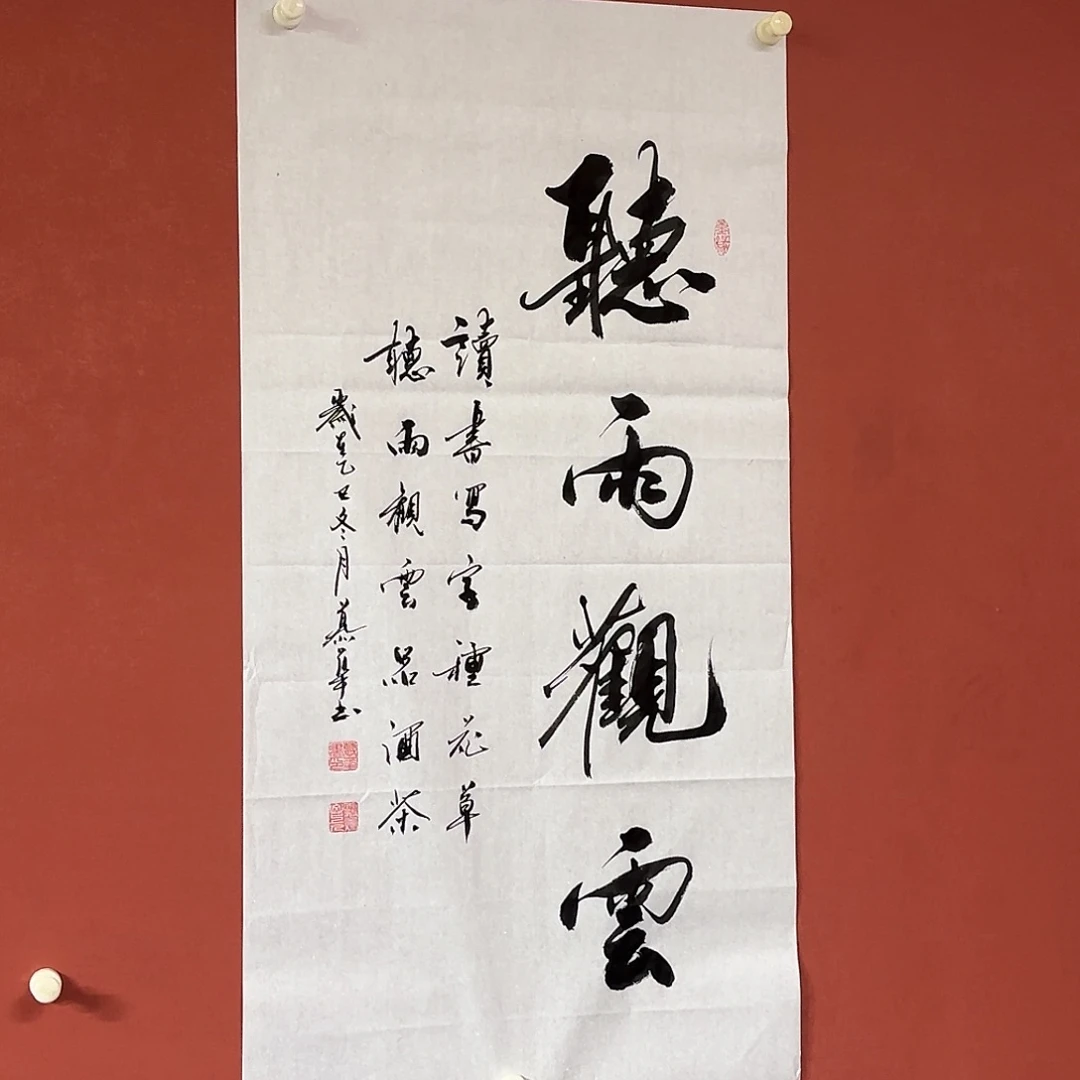 聽雨觀雲
讀書寫字種花草
聽雨觀雲品酒茶
歲在乙巳冬月慕華书